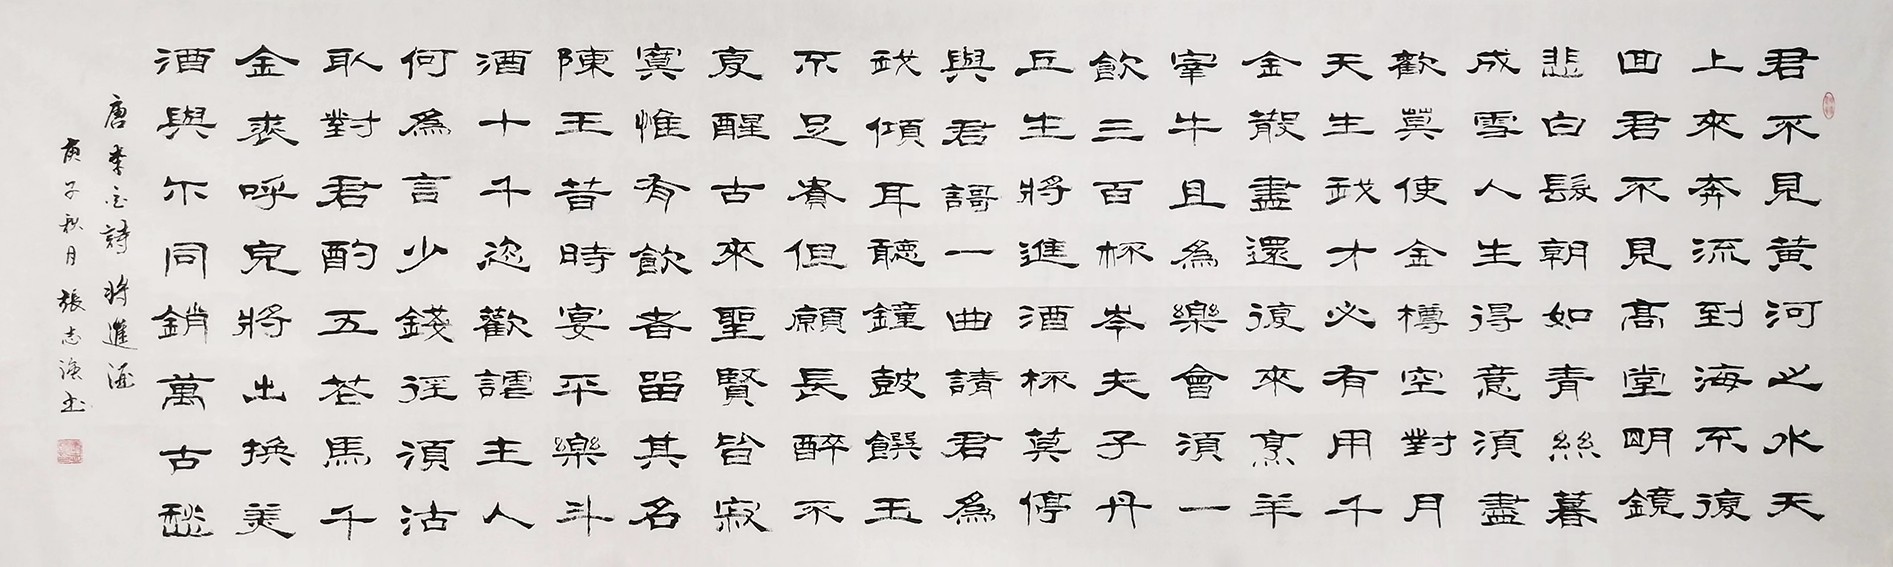 君不見黃河之水天
上來奔流到海不復
回君不見高堂明鏡
悲白髮朝如青絲暮
成雪人生得意須盡
歡莫使金樽空對月
天生我才必有用千
金散盡還復來烹羊
宰牛且為樂會須一
飲三百杯岑夫子丹
丘生將進酒杯莫停
與君謌一曲請君為
我傾耳聽鐘鼓饌玉
不足貴但願長醉不
复醒古來聖賢皆寂
寞惟有飲者留其名
陳王昔時宴平樂斗
酒十千恣歡謔主人
何為言少錢徑須沽
取對君酌五花馬千
金裘呼兒將出換美
酒與尔同銷萬古愁
唐李白詩將進酒
庚子秋月張志書